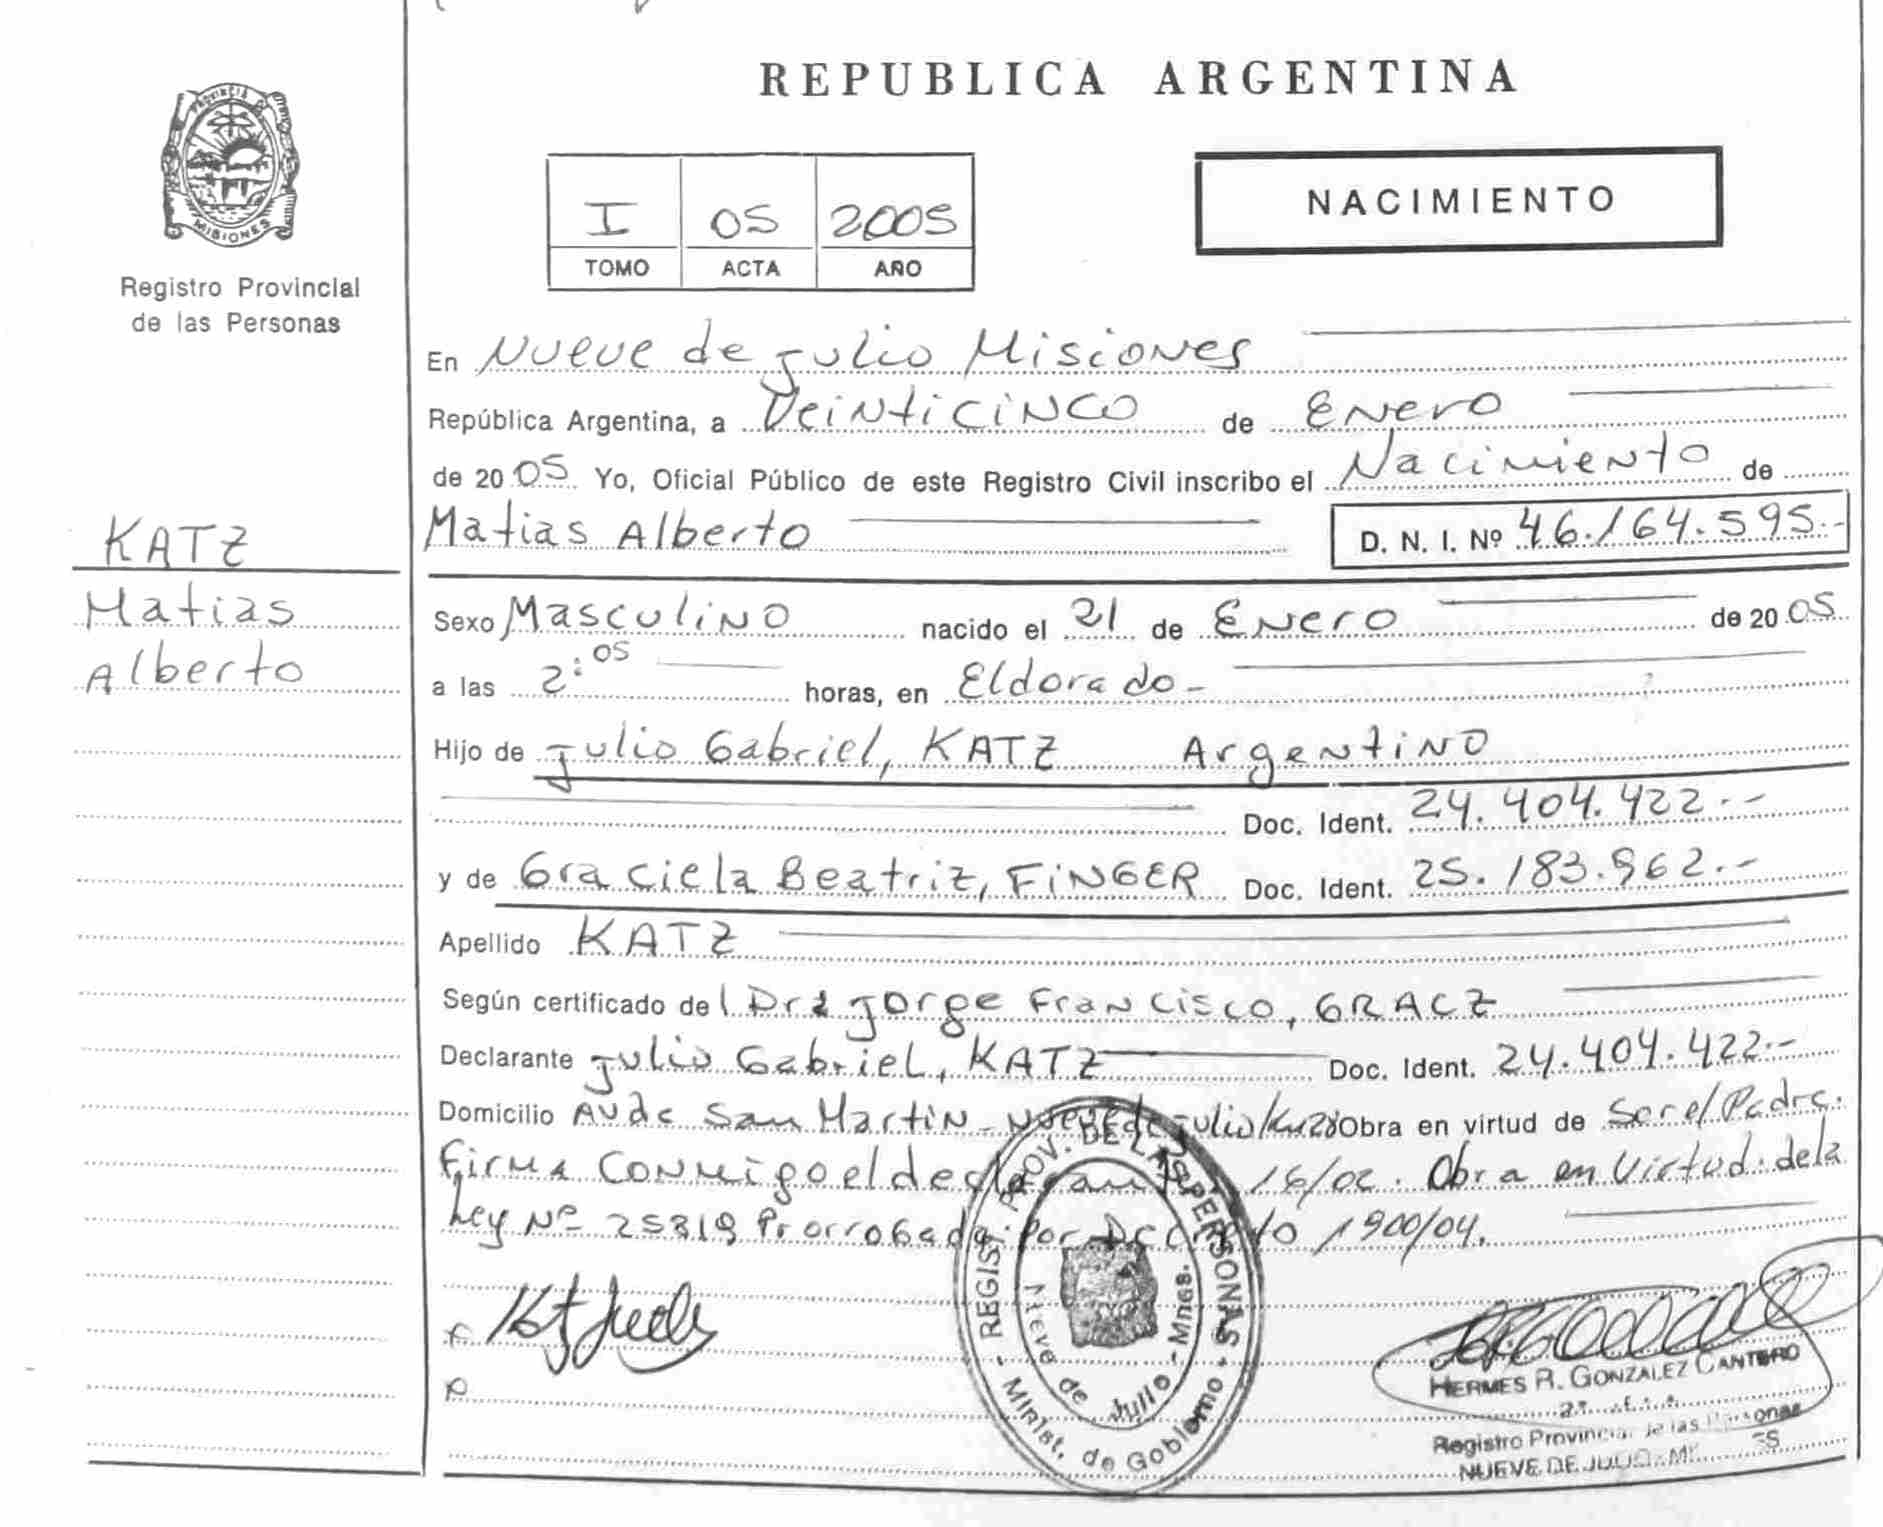 REPUBLICA ARGENTINA
PROVINCIA DE
MISIONES
Registro Provincial
de las Personas
I 05 2005
TOMO ACTA AÑO
NACIMIENTO
En Nueve de Julio Misiones
República Argentina, a Veinticinco de Enero
de 20 05 Yo, Oficial Público de este Registro Civil inscribo el Nacimiento de
Matias Alberto D. N. I. Nº 46.164.595.-
KATZ
Matias
Alberto
Sexo Masculino nacido el 21 de Enero de 20 05
a las 2:05 horas, en Eldorado-
Hijo de Julio Gabriel, KATZ Argentino
Doc. Ident. 24.404.422.--
y de Graciela Beatriz, FINGER Doc. Ident. 25.183.962.--
Apellido KATZ
Según certificado del Jorge Francisco, GRACZ
Declarante Julio Gabriel, KATZ Doc. Ident. 24.404.422.--
Domicilio Avda San Martin - Nueve de Julio Obra en virtud de Ser el Padre.
Firma Conmigo el 16/02. Obra en Virtud de la
Ley Nº 25819 Prorrogada Por 1900/04.
REGIST. PROV. DE LAS PERSONAS
Nueve de Julio - Mnes.
Minist. de Gobierno
HERMES R. GONZALEZ CANTERO
Registro Provincial de las Personas
NUEVE DE JULIO